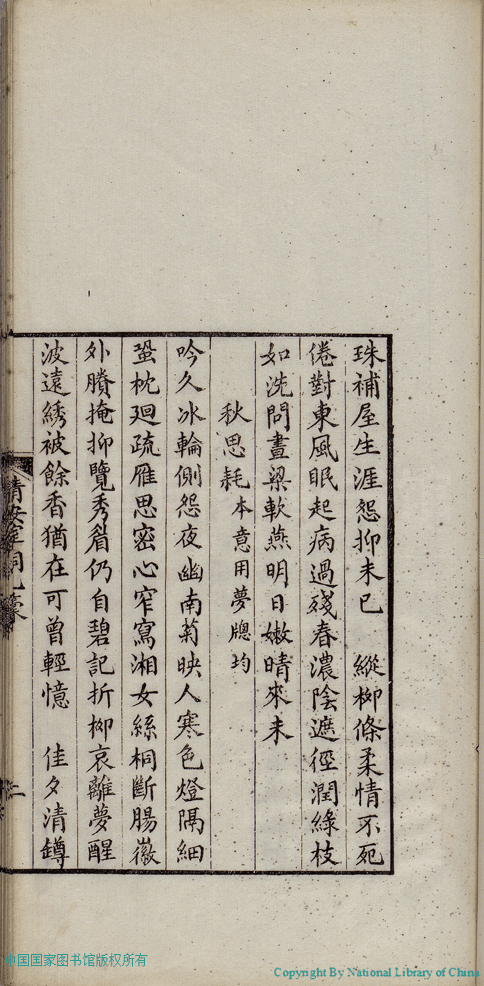 珠補屋生涯怨抑未已　縱柳條柔情不死
倦對東風眠起病過殘春濃陰遮徑潤綠枝
如洗問畫梁軟燕明日嫩晴來未
秋思耗本意用夢牕均
吟久冰輪側怨夜幽南菊映人寒色燈隔細
蛩枕廻疏雁思密心窄寫湘女絲桐斷腸徽
外賸掩抑覽秀眉仍自碧記折柳哀離夢醒
波遠綉被餘香猶在可曾輕憶　佳夕清罇
二
中国国家图书馆版权所有
Copyright By National Library of China